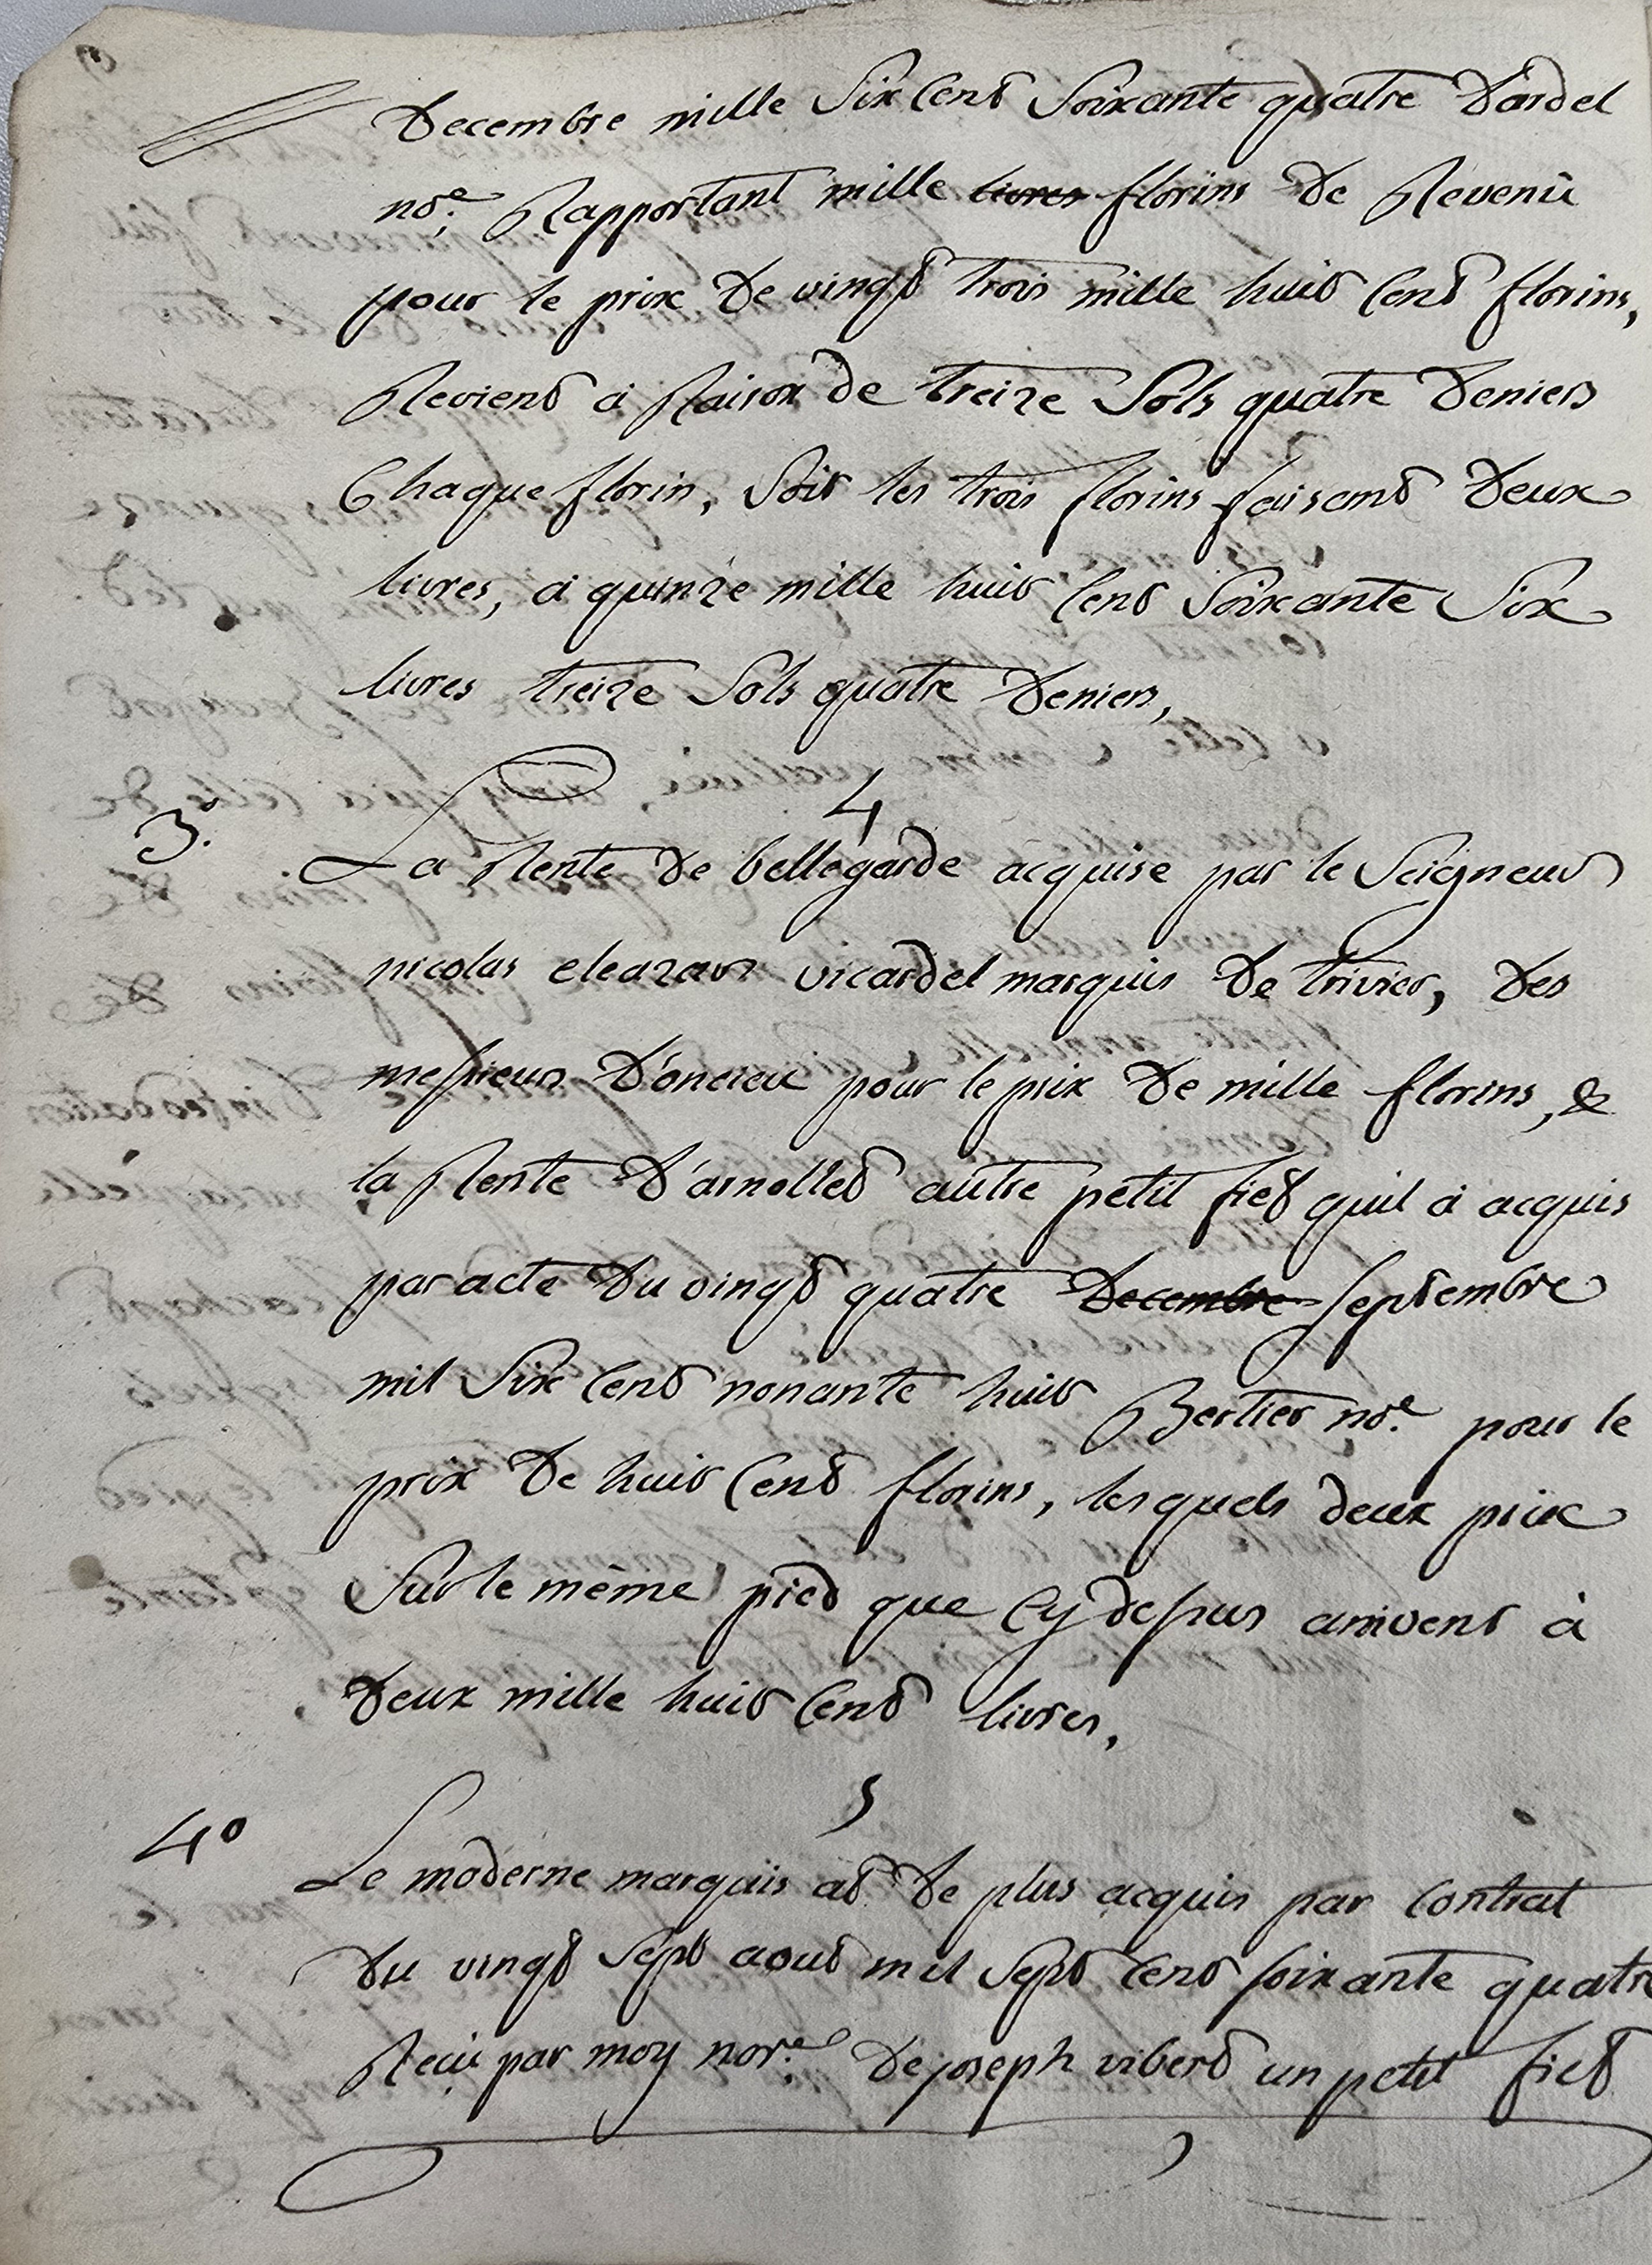 Decembre mille Six Cent Soixante quatre Dardel
nore. Rapportant mille livres florins De Revenû
pour le prix De vingt trois mille huit Cent florins,
Revient à Raison de treize Sols quatre Deniers
Chaque florin, Soit les trois florins faisant Deux
livres, a quinze mille huit Cent Soixante Six
livres treize Sols quatre Deniers,
4
3.° La Rente De bellegarde acquise par le Seigneur
nicolas eleazar vicardel marquis De trivier, Des
messieurs D'oncieu pour le prix De mille florins, &
la Rente D'arnollet autre petit fief quil à acquis
par acte Du vingt quatre Decembre Septembre
mil Six Cent nonante huit Bertier nore. pour le
prix De huit Cent florins, lesquels deux prix
Sur le mème pied que Cy dessus arrivent à
Deux mille huit Cent livres,
5
4° Le moderne marquis at De plus acquis par Contrat
Du vingt Sept aout mil Sept Cent soixante quatre
Reçu par moy nore. De joseph vibert un petit fief